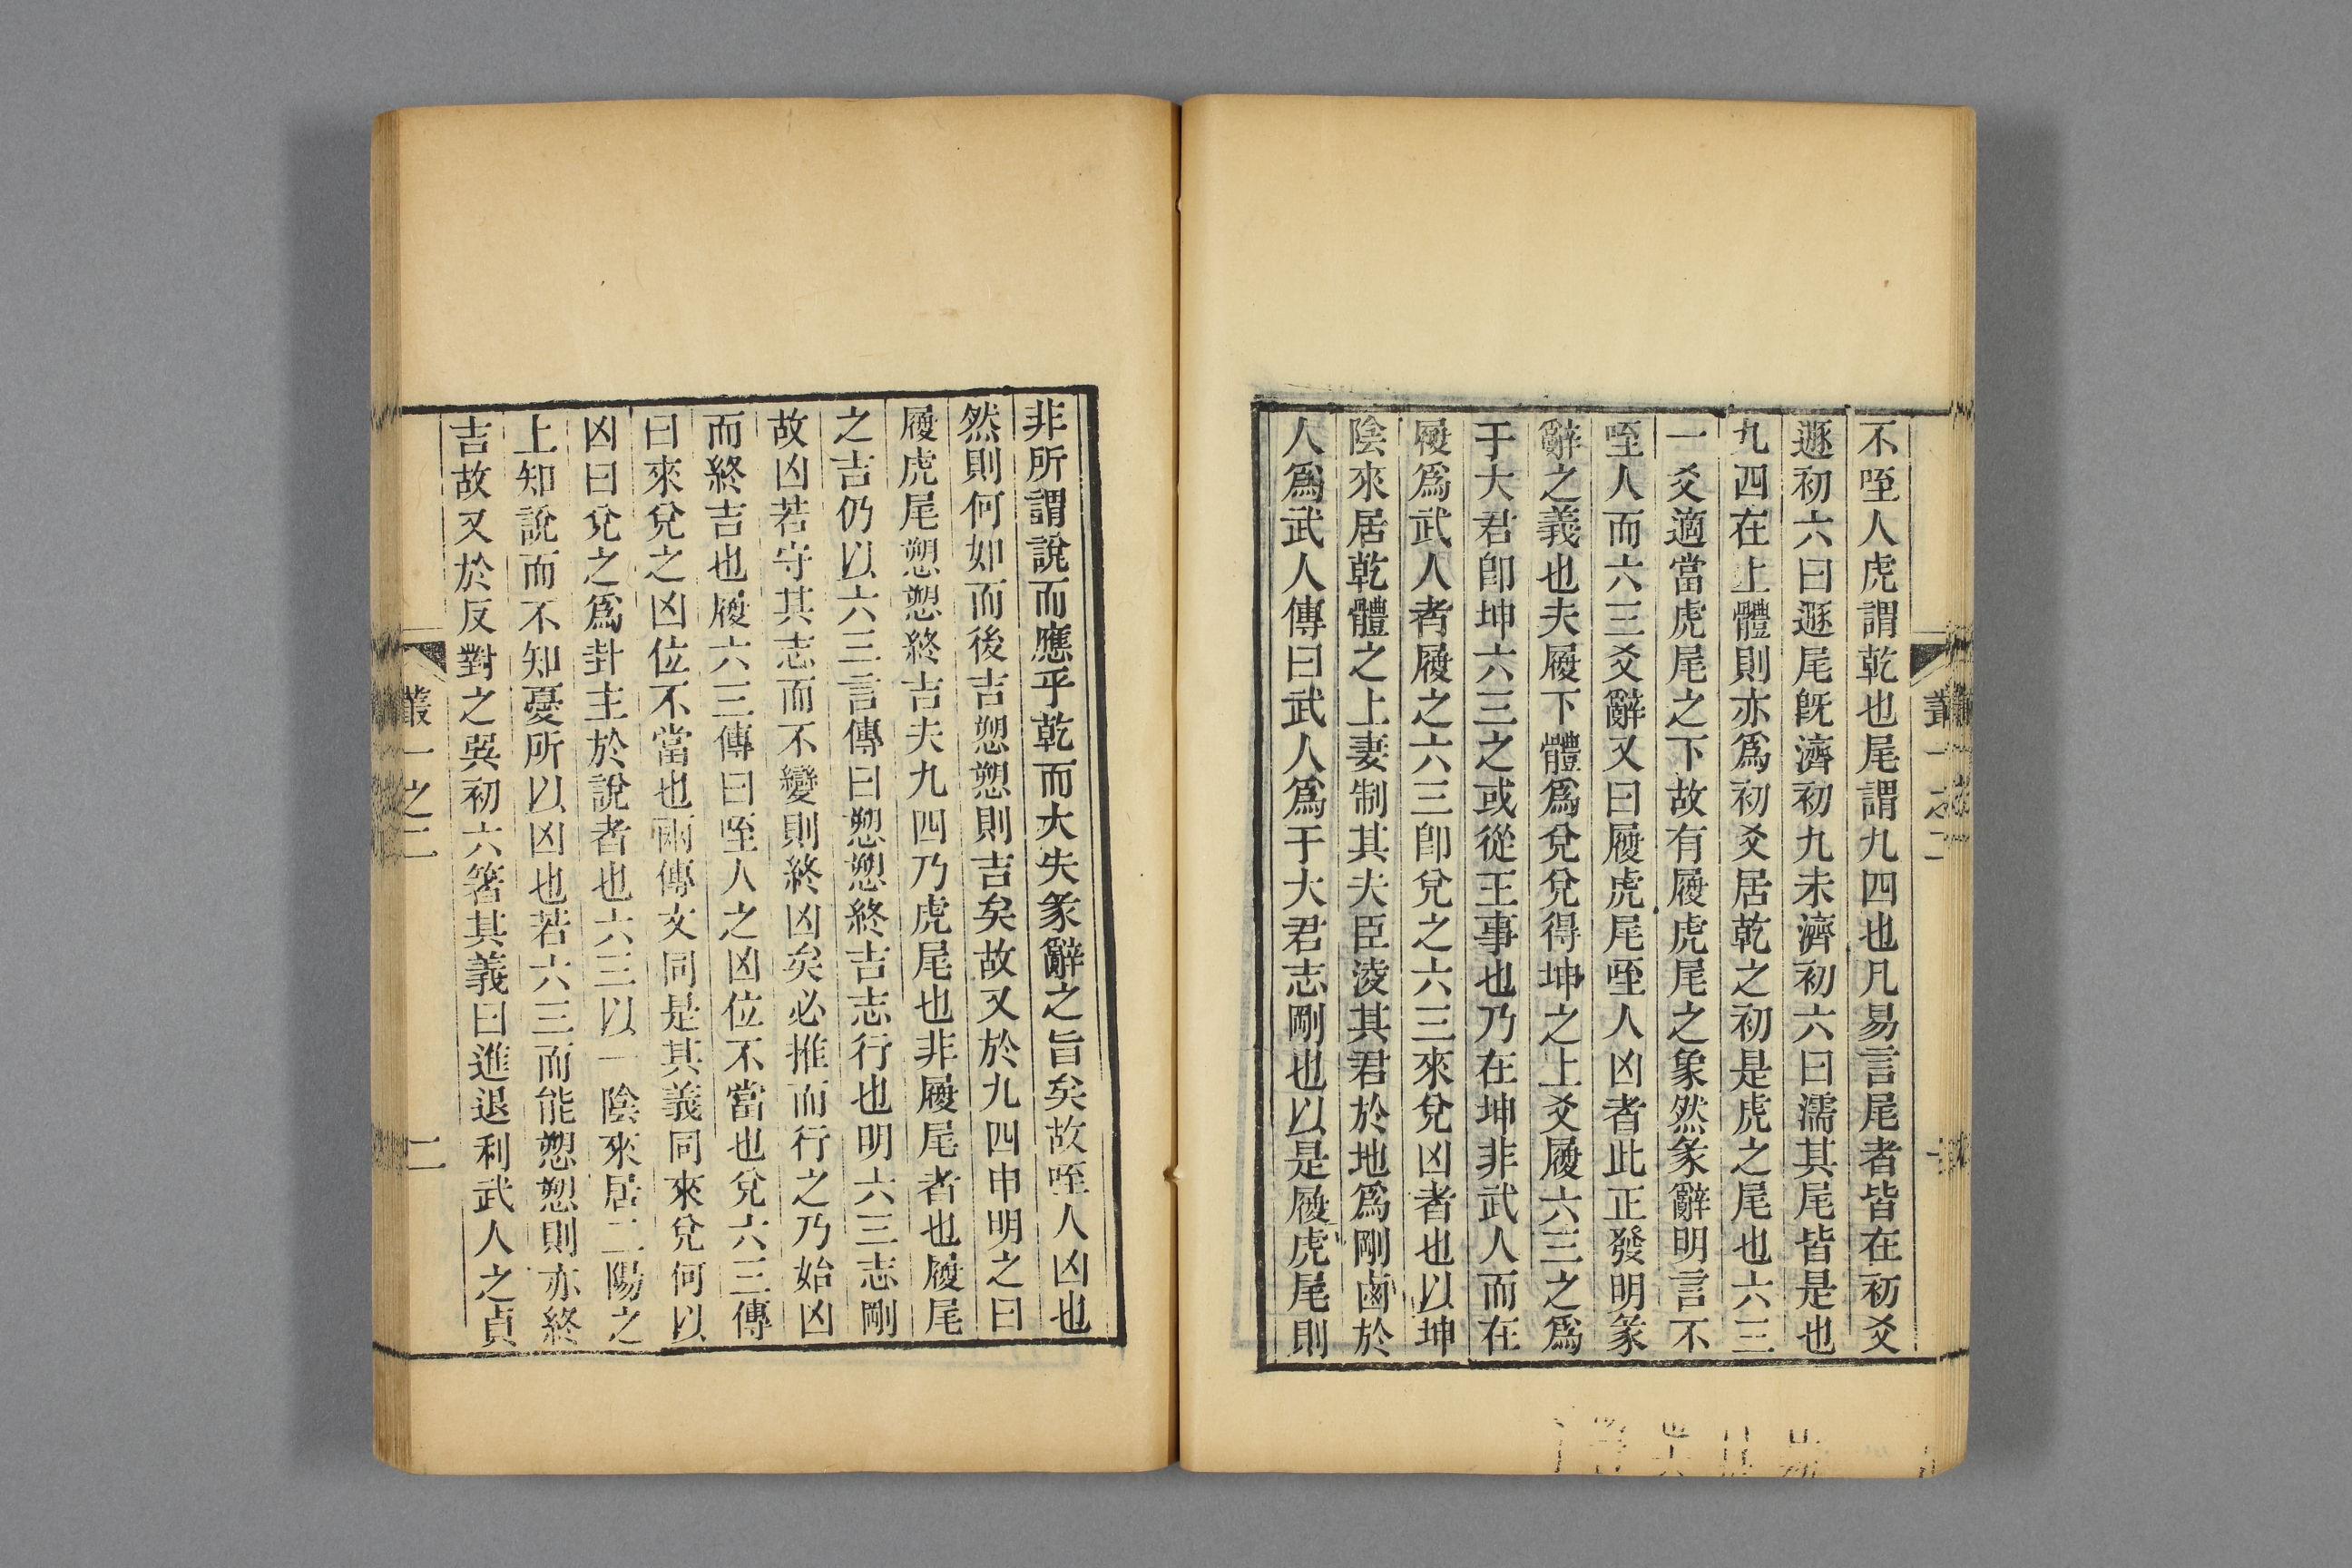 不咥人虎謂乾也尾謂九四也凡易言尾者皆在初爻
遯初六曰遯尾旣濟初九未濟初六曰濡其尾皆是也
九四在上體則亦爲初爻居乾之初是虎之尾也六三
一爻適當虎尾之下故有履虎尾之象然彖辭明言不
咥人而六三爻辭又曰履虎尾咥人凶者此正發明彖
辭之義也夫履下體爲兌兌得坤之上爻履六三之爲
于大君卽坤六三之或從王事也乃在坤非武人而在
履爲武人者履之六三卽兌之六三來兌凶者也以坤
陰來居乾體之上妻制其夫臣淩其君於地爲剛鹵於
人爲武人傳曰武人爲于大君志剛也以是履虎尾則
非所謂說而應乎乾而大失彖辭之旨矣故咥人凶也
然則何如而後吉愬愬則吉矣故又於九四申明之曰
履虎尾愬愬終吉夫九四乃虎尾也非履尾者也履尾
之吉仍以六三言傳曰愬愬終吉志行也明六三志剛
故凶若守其志而不變則終凶矣必推而行之乃始凶
而終吉也履六三傳曰咥人之凶位不當也兌六三傳
曰來兌之凶位不當也兩傳文同是其義同來兌何以
凶曰兌之爲卦主於說者也六三以一陰來居二陽之
上知說而不知憂所以凶也若六三而能愬愬則亦終
吉故又於反對之巽初六箸其義曰進退利武人之貞
叢一之二
二